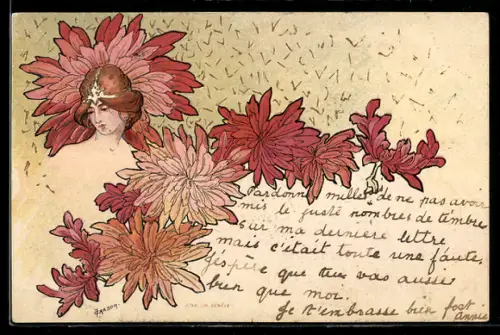 Pardonne mille de ne pas avoir
mis le juste nombres de témbre
sur ma derniere lettre
mais c'était toute une fáute.
J'éspère que tu vas aussi
bien que moi.
Je t'embrasse bien fort
Annie